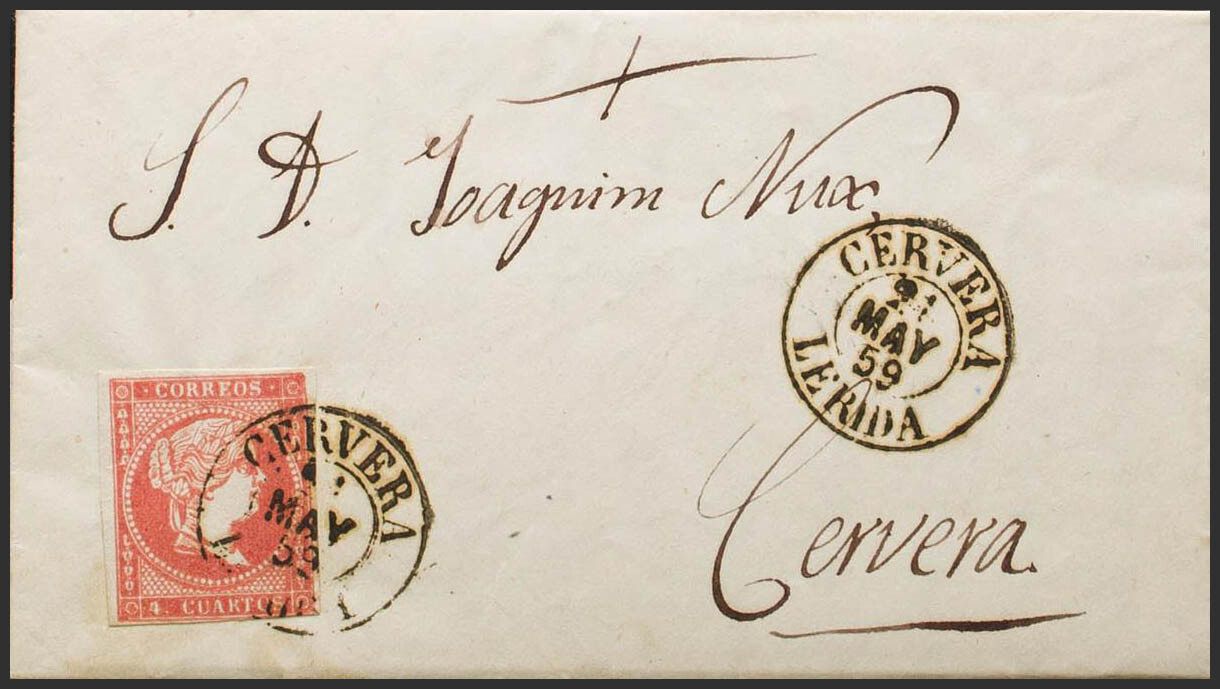 S. D. Joaquim Nux,
CERVERA
21
MAY
59
LERIDA
CORREOS
4. CUARTO
CERVERA
MAY
59
Cervera.